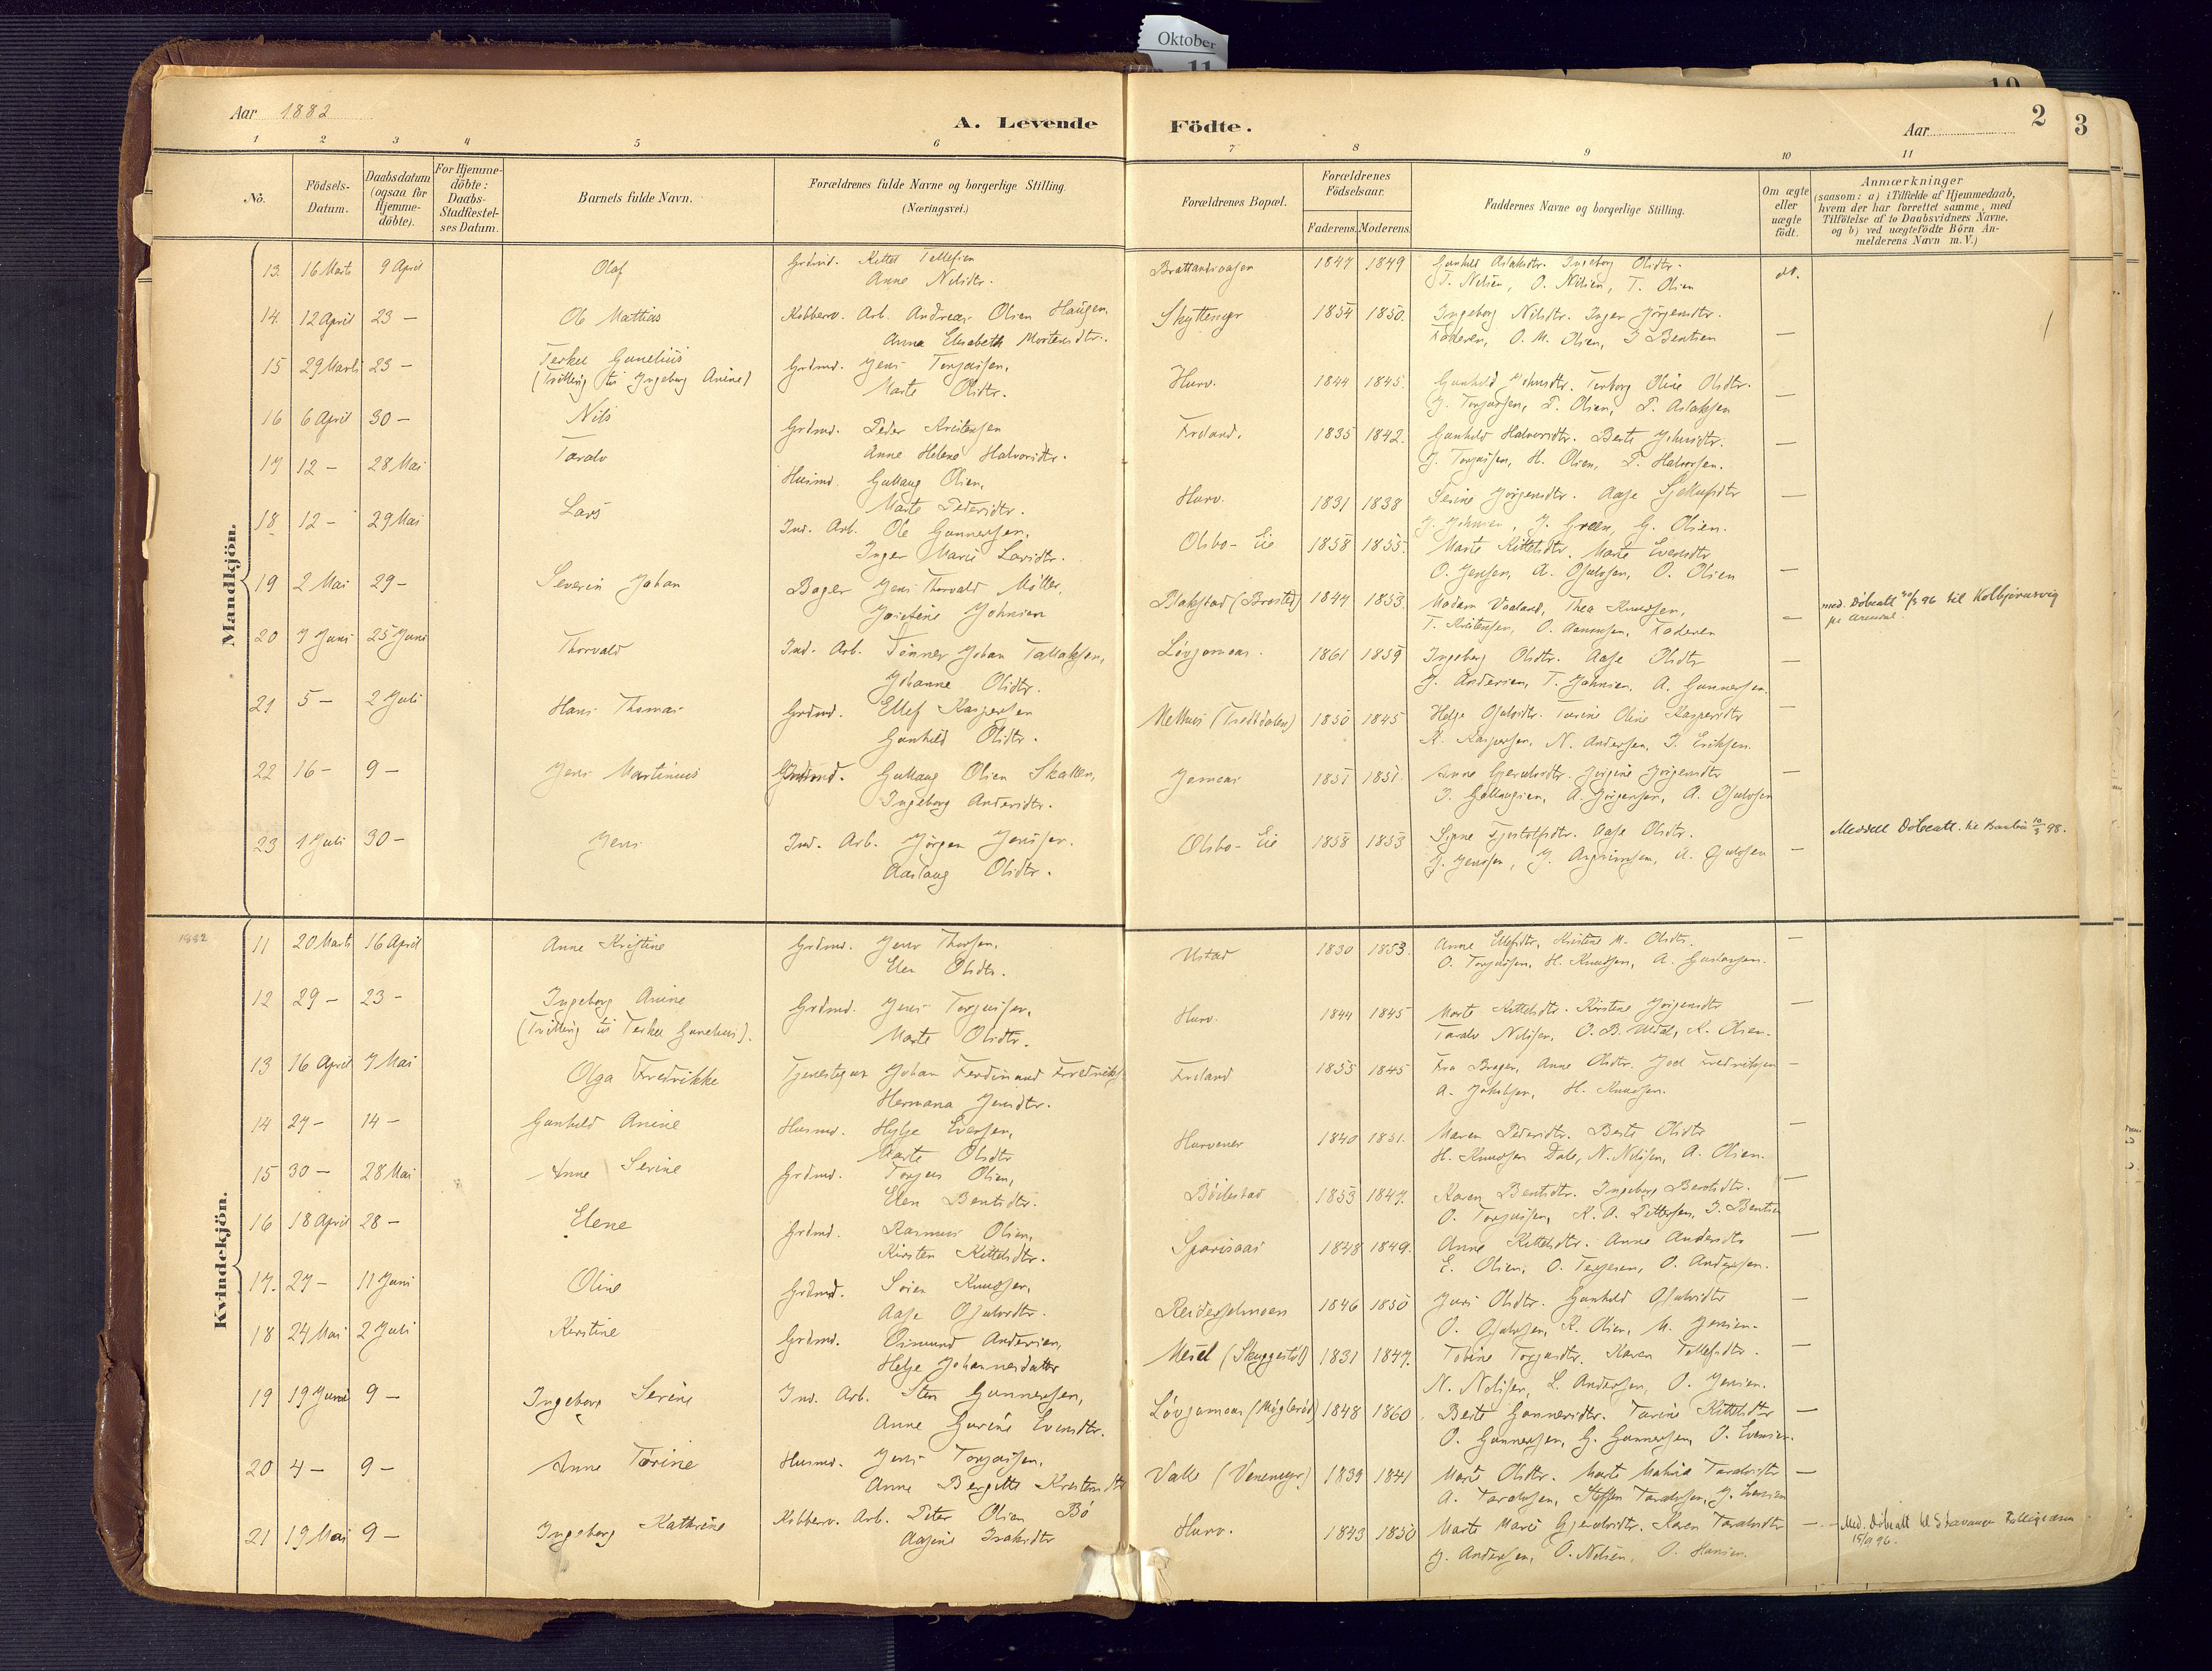 Oktober
11
10
3
Aar 1882
A. Levende Födte.
Aar
2
1 2 3 4 5 6 7 8 9 10 11
No.
Födsels-Datum.
Daabsdatum (ogsaa for Hjemme-döbte).
For Hjemme-döbte: Daabs-Stadfæstel-ses Datum.
Barnets fulde Navn.
Forældrenes fulde Navne og borgerlige Stilling.
(Næringsvei.)
Forældrenes Bopæl.
Forældrenes Födselsaar.
Faderens. Moderens.
Faddernes Navne og borgerlige Stilling.
Om ægte eller uægte födt.
Anmærkninger
(saasom: a) i Tilfælde af Hjemmedaab,
hvem der har forrettet samme, med
Tilföielse af to Daabsvidners Navne.
og b) ved uægtefödte Börn An-
melderens Navn m.V.)
Mandkjön.
13. 16 Marts 9 April Olaf Grdmd. Kittel Tellefsen 1847 1849 Gunhild Aslaksdtr. Ingeborg Olsdtr.
Anne Nilsdtr. T. Nilsen, O. Nilsen, T. Olsen
14. 12 April 23 — Ole Mattias Kobberv. Arb. Andreas Olsen Haugen, Skyttemyr 1854 1850. Ingeborg Nilsdtr. Inger Jörgensdtr.
Anna Elisabeth Mortensdtr. Faderen, O. M. Olsen, J Bentsen —
15 29 Marts 23 — Terkel Gunelius Grdmd. Jens Torjussen, Hurv. 1844 1845. Gunhild Johnsdtr. Torborg Oline Olsdtr.
(Tvilling til Ingeborg Anine) Marte Olsdtr. J. Torjussen, T. Olsen, T. Aslaksen —
16 6 April 30 — Nils Grdmd. Peder Kristensen Froland. 1835 1842. Gunhild Halvorsdtr. Berte Johnsdtr.
Anne Helene Halvorsdtr. J. Torjussen, H. Olsen, T. Halvorsen. —
17 12 — 28 Mai Taralv Husmd. Gullaug Olsen, Hurv. 1831 1838 Serine Jörgensdtr. Aase
Marte Pedersdtr. J. Johnsen, J. Green, G. Olsen. —
18 12 — 29 Mai Lars Ind. Arb. Ole Gunnersen, Olsbo-Eie 1858 1855. Marte Kittelsdtr. Marte Evensdtr
Inger Marie Larsdtr. O. Jensen, A. Osulvsen, O. Olsen —
19 2 Mai 29 — Severin Johan Bager Jens Thorvald Möller, Blakstad (Brosted) 1847 1853. Madam Vaaland, Thea Knudsen, med. Döbeatt til Kolbjörnsvig
Josefine Johnsen T. Kristensen, O. Aanonsen, Faderen pr Arendal.
20 7 Juni 25 Juni Thorvald Ind. Arb. Tönnes Johan Tallaksen, Lövjomaas. 1861 1859 Ingeborg Olsdtr. Aase Olsdtr
Johanne Olsdtr. J. Andersen, T. Johnsen, A. Gunnersen. —
21 5 — 2 Juli Hans Thomas Grdmd. Ellef Kaspersen Messel (Tredsdalen) 1850 1845 Helge Osulvsdtr. Torine Oline Kaspersdtr
Gunhild Olsdtr. K. Kaspersen, N. Andersen, J. Eriksen. —
22 16 — 9 — Jens Martinius Gullaug Olsen Skallen, Jomaas 1851 1851. Anne Gjerulvsdtr. Jörgine Jörgensdtr
Ingeborg Andersdtr. O. Gullaugsen, A. Jörgensen, A. Osulvsen —
23 1 Juli 30 — Jens Ind. Arb. Jörgen Jenssen. Olsbo-Eie 1858 1853 Signe Tjostolfsdtr. Aase Olsdtr. Meddelt Döbeatt. til Barbu 10/3 98.
Aaslaug Olsdtr. J. Jenssen, J. Asgrimsen, A. Osulvsen —
Kvindekjön.
1882
11 20 Marts 16 April Anne Kristine Grdmd. Jens Thorsen, Ustad 1830 1853. Anne Ellefsdtr, Kristine M. Olsdtr. —
Elen Olsdtr. O. Torjussen, H. Knudsen, A. Gustavsen.
12 29 — 23 — Ingeborg Anine Grdmd. Jens Torjussen, Hurv. 1844 1845 Marte Kittelsdtr. Kirstine Jörgensdtr —
(Tvilling til Terkel Gunelius). Marte Olsdtr. Taralv Nilssen, O. B. Uldal, K. Olsen.
13 16 April 7 Mai Olga Fredrikke Tjenestegut Johan Ferdinand Fredriks Froland 1855 1845 Fru Bragen, Anne Olsdtr. Joel Fredriksen —
Hermana Jensdtr. A. Jakobsen, H. Knudsen.
14 27 — 14 — Gunhild Anine Husmd. Hylje Eversen, Hurvener 1840 1851. Maren Pedersdtr. Berte Olsdtr —
Marte Olsdtr H. Knudsen Dale, N. Nilssen, A. Olsen.
15 30 — 28 Mai Anne Serine Grdmd. Torjus Olsen, Böilestad 1853 1847. Karen Bentsdtr. Ingeborg Bentsdtr. —
Elen Bentsdtr. O. Torjussen, K. A. Pettersen, J. Bentsen
16 18 April 28 — Elene Grdmd. Rasmus Olsen, Sparsaas 1848 1849. Anne Kittelsdtr. Anne Andersdtr —
Kirsten Kittelsdtr. E. Olsen, O. Terjesen, O. Andersen.
17. 27 — 11 Juni Oline Grdmd. Sören Knudsen, Reiderselmoen 1846 1850 Juri Olsdtr. Gunhild Osulvsdtr —
Aase Osulvsdtr. O. Osulvsen, K. Olsen, M. Jensen.
18 24 Mai 2 Juli Kirstine Grdmd. Osmund Andersen, Mesel (Skuggestöl) 1831 1847. Tobine Torjusdtr. Karen Tellefsdtr. —
Helje Johannesdatter N. Nilssen, L. Andersen, O. Jensen.
19 19 Juni 9 — Ingeborg Serine Ind. Arb. Sten Gunnersen, Lövjomaas 1848 1860. Berte Gunnersdtr. Torine Kittelsdtr —
Anne Gurine Evensdtr. O. Gunnersen, G. Gunnersen, O. Evensen.
20 4 — 9 — Anne Torine Husmd. Jens Torjussen, Valle (Venemyr) 1839 1841 Marte Olsdtr. Marte Maline Taralvsdtr —
Anne Bergitte Kristensdtr A. Taralvsen, Steffen Taralvsen, J. Evensen
21 19 Mai 9 — Ingeborg Kathrine Kobberv. Arb. Peter Olsen Bö Hurv. 1843 1850 Marte Marie Gjerulvsdtr. Karen Taralvsdtr — Med. Döbeatt til Stavanger
Aasine Isaksdtr J. Andersen, O. Nilsen, O. Hansen. 15/9 96.